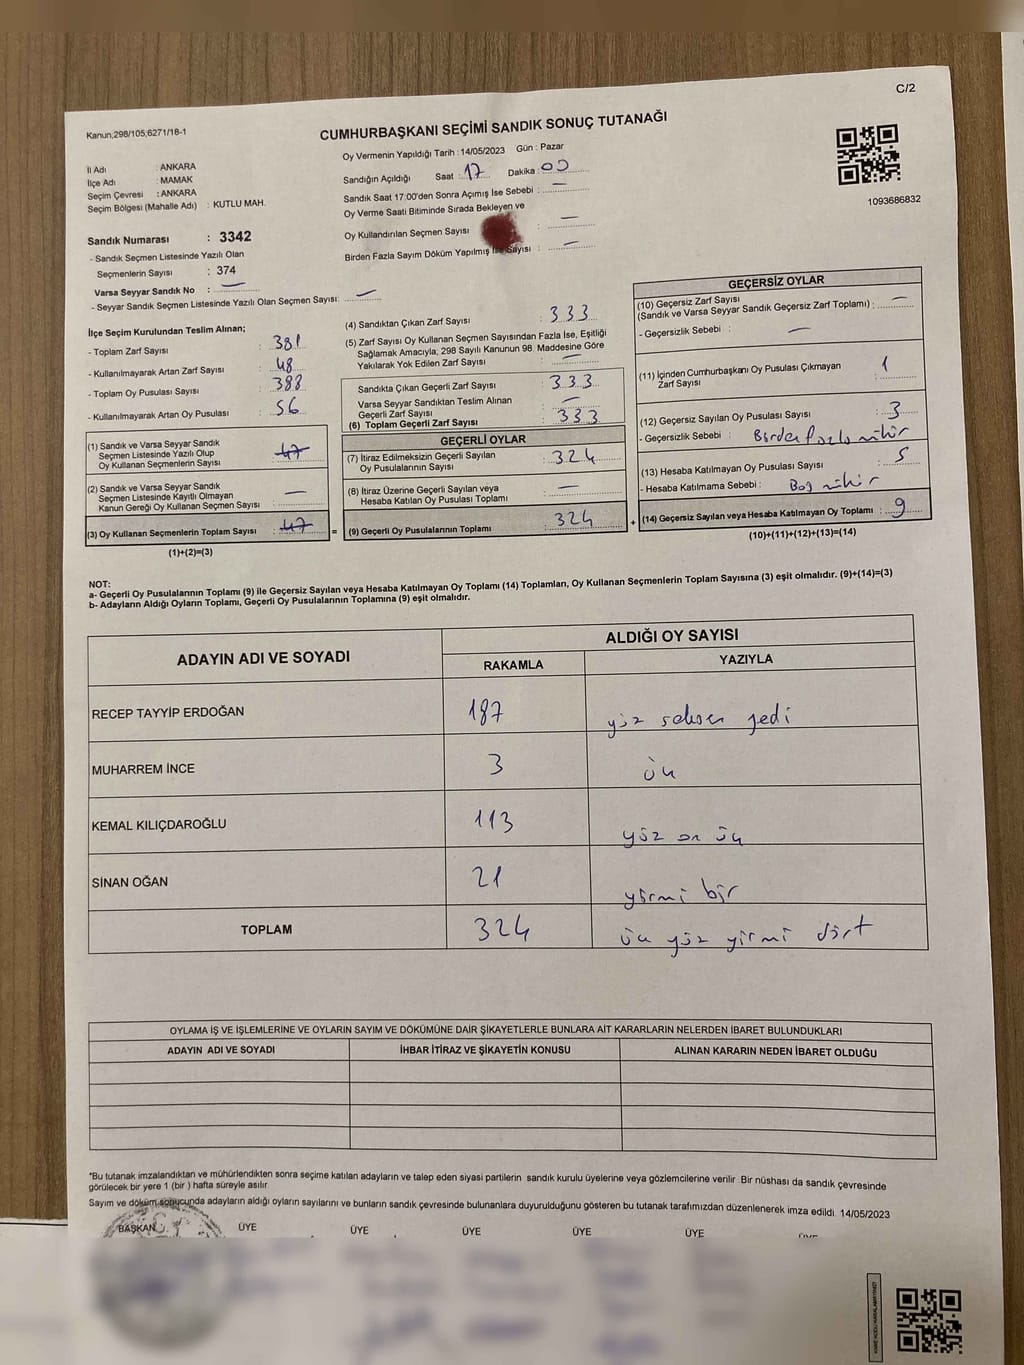 C/2
Kanun;298/105,6271/18-1
CUMHURBAŞKANI SEÇİMİ SANDIK SONUÇ TUTANAĞI
İl Adı : ANKARA
İlçe Adı : MAMAK
Seçim Çevresi : ANKARA
Seçim Bölgesi (Mahalle Adı) : KUTLU MAH.
Sandık Numarası : 3342
- Sandık Seçmen Listesinde Yazılı Olan
Seçmenlerin Sayısı : 374
Varsa Seyyar Sandık No : —
- Seyyar Sandık Seçmen Listesinde Yazılı Olan Seçmen Sayısı: —
Oy Vermenin Yapıldığı Tarih : 14/05/2023 Gün : Pazar
Sandığın Açıldığı Saat : 17 Dakika : 00
Sandık Saat 17:00'den Sonra Açımış İse Sebebi : —
Oy Verme Saati Bitiminde Sırada Bekleyen ve
Oy Kullandırılan Seçmen Sayısı : —
Birden Fazla Sayım Döküm Yapılmış İse Sayısı : —
1093686832
İlçe Seçim Kurulundan Teslim Alınan;
- Toplam Zarf Sayısı : 381
- Kullanılmayarak Artan Zarf Sayısı : 48
- Toplam Oy Pusulası Sayısı : 388
- Kullanılmayarak Artan Oy Pusulası : 56
(1) Sandık ve Varsa Seyyar Sandık
Seçmen Listesinde Yazılı Olup
Oy Kullanan Seçmenlerin Sayısı : 47
(2) Sandık ve Varsa Seyyar Sandık
Seçmen Listesinde Kayıtlı Olmayan
Kanun Gereği Oy Kullanan Seçmen Sayısı : —
(3) Oy Kullanan Seçmenlerin Toplam Sayısı : 47 =
(1)+(2)=(3)
(4) Sandıktan Çıkan Zarf Sayısı : 333
(5) Zarf Sayısı Oy Kullanan Seçmen Sayısından Fazla İse, Eşitliği
Sağlamak Amacıyla; 298 Sayılı Kanunun 98. Maddesine Göre
Yakılarak Yok Edilen Zarf Sayısı : —
Sandıkta Çıkan Geçerli Zarf Sayısı : 333
Varsa Seyyar Sandıktan Teslim Alınan
Geçerli Zarf Sayısı : —
(6) Toplam Geçerli Zarf Sayısı : 333
GEÇERLİ OYLAR
(7) İtiraz Edilmeksizin Geçerli Sayılan
Oy Pusulalarının Sayısı : 324
(8) İtiraz Üzerine Geçerli Sayılan veya
Hesaba Katılan Oy Pusulası Toplamı : —
(9) Geçerli Oy Pusulalarının Toplamı : 324 +
GEÇERSİZ OYLAR
(10) Geçersiz Zarf Sayısı
(Sandık ve Varsa Seyyar Sandık Geçersiz Zarf Toplamı) : —
- Geçersizlik Sebebi : —
(11) İçinden Cumhurbaşkanı Oy Pusulası Çıkmayan
Zarf Sayısı : 1
(12) Geçersiz Sayılan Oy Pusulası Sayısı : 3
- Geçersizlik Sebebi : Birden fazla mühür
(13) Hesaba Katılmayan Oy Pusulası Sayısı : 5
- Hesaba Katılmama Sebebi : Boş mühür
(14) Geçersiz Sayılan veya Hesaba Katılmayan Oy Toplamı : 9
(10)+(11)+(12)+(13)=(14)
NOT:
a- Geçerli Oy Pusulalarının Toplamı (9) ile Geçersiz Sayılan veya Hesaba Katılmayan Oy Toplamı (14) Toplamları, Oy Kullanan Seçmenlerin Toplam Sayısına (3) eşit olmalıdır. (9)+(14)=(3)
b- Adayların Aldığı Oyların Toplamı, Geçerli Oy Pusulalarının Toplamına (9) eşit olmalıdır.
ADAYIN ADI VE SOYADI
ALDIĞI OY SAYISI
RAKAMLA YAZIYLA
RECEP TAYYİP ERDOĞAN 187 yüz seksen yedi
MUHARREM İNCE 3 üç
KEMAL KILIÇDAROĞLU 113 yüz on üç
SİNAN OĞAN 21 yirmi bir
TOPLAM 324 üç yüz yirmi dört
OYLAMA İŞ VE İŞLEMLERİNE VE OYLARIN SAYIM VE DÖKÜMÜNE DAİR ŞİKAYETLERLE BUNLARA AİT KARARLARIN NELERDEN İBARET BULUNDUKLARI
ADAYIN ADI VE SOYADI İHBAR İTİRAZ VE ŞİKAYETİN KONUSU ALINAN KARARIN NEDEN İBARET OLDUĞU
*Bu tutanak imzalandıktan ve mühürlendikten sonra seçime katılan adayların ve talep eden siyasi partilerin sandık kurulu üyelerine veya gözlemcilerine verilir. Bir nüshası da sandık çevresinde
görülecek bir yere 1 (bir ) hafta süreyle asılır.
Sayım ve döküm sonucunda adayların aldığı oyların sayılarını ve bunların sandık çevresinde bulunanlara duyurulduğunu gösteren bu tutanak tarafımızdan düzenlenerek imza edildi. 14/05/2023
BAŞKAN ÜYE ÜYE ÜYE ÜYE ÜYE